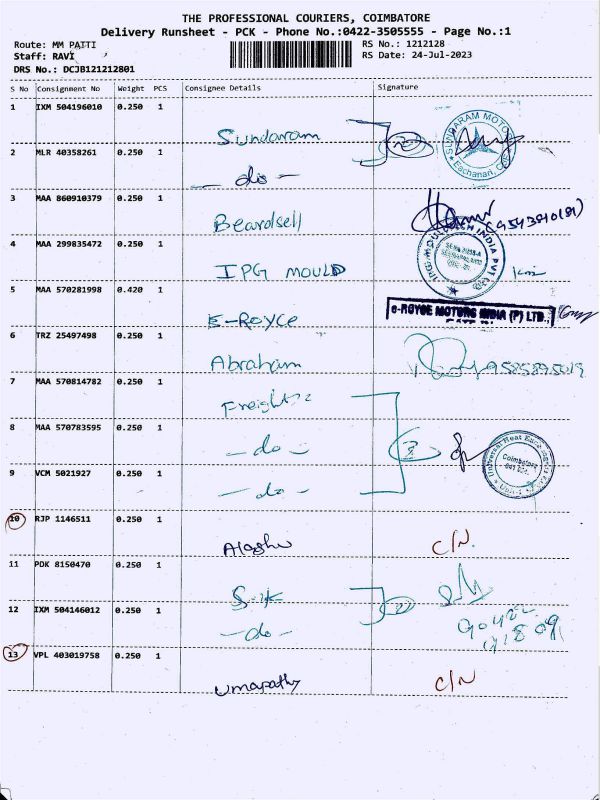 THE PROFESSIONAL COURIERS, COIMBATORE
Delivery Runsheet - PCK - Phone No.:0422-3505555 - Page No.:1
Route: MM PATTI RS No.: 1212128
Staff: RAVI RS Date: 24-Jul-2023
DRS No.: DCJB121212801
S No Consignment No Weight PCS Consignee Details Signature
1 IXM 504196010 0.250 1
Sundaram 2 SUNDARAM MOTO
Eachanari, CBE
2 MLR 40358261 0.250 1
- do -
3 MAA 860910379 0.250 1
Beardsell
4 MAA 299835472 0.250 1
IPG MOULD
5 MAA 570281998 0.420 1
E-Royce e-ROYCE MOTORS INDIA (P) LTD.,
6 TRZ 25497498 0.250 1
Abraham 9585895019
7 MAA 570814782 0.250 1
Freight
8 MAA 570783595 0.250 1
- do - 3 Coimbatore
9 VCM 5021927 0.250 1
- do -
10 RJP 1146511 0.250 1
C/N.
11 PDK 8150470 0.250 1
2
12 IXM 504146012 0.250 1
- do -
13 VPL 403019758 0.250 1
Umapathy C/N